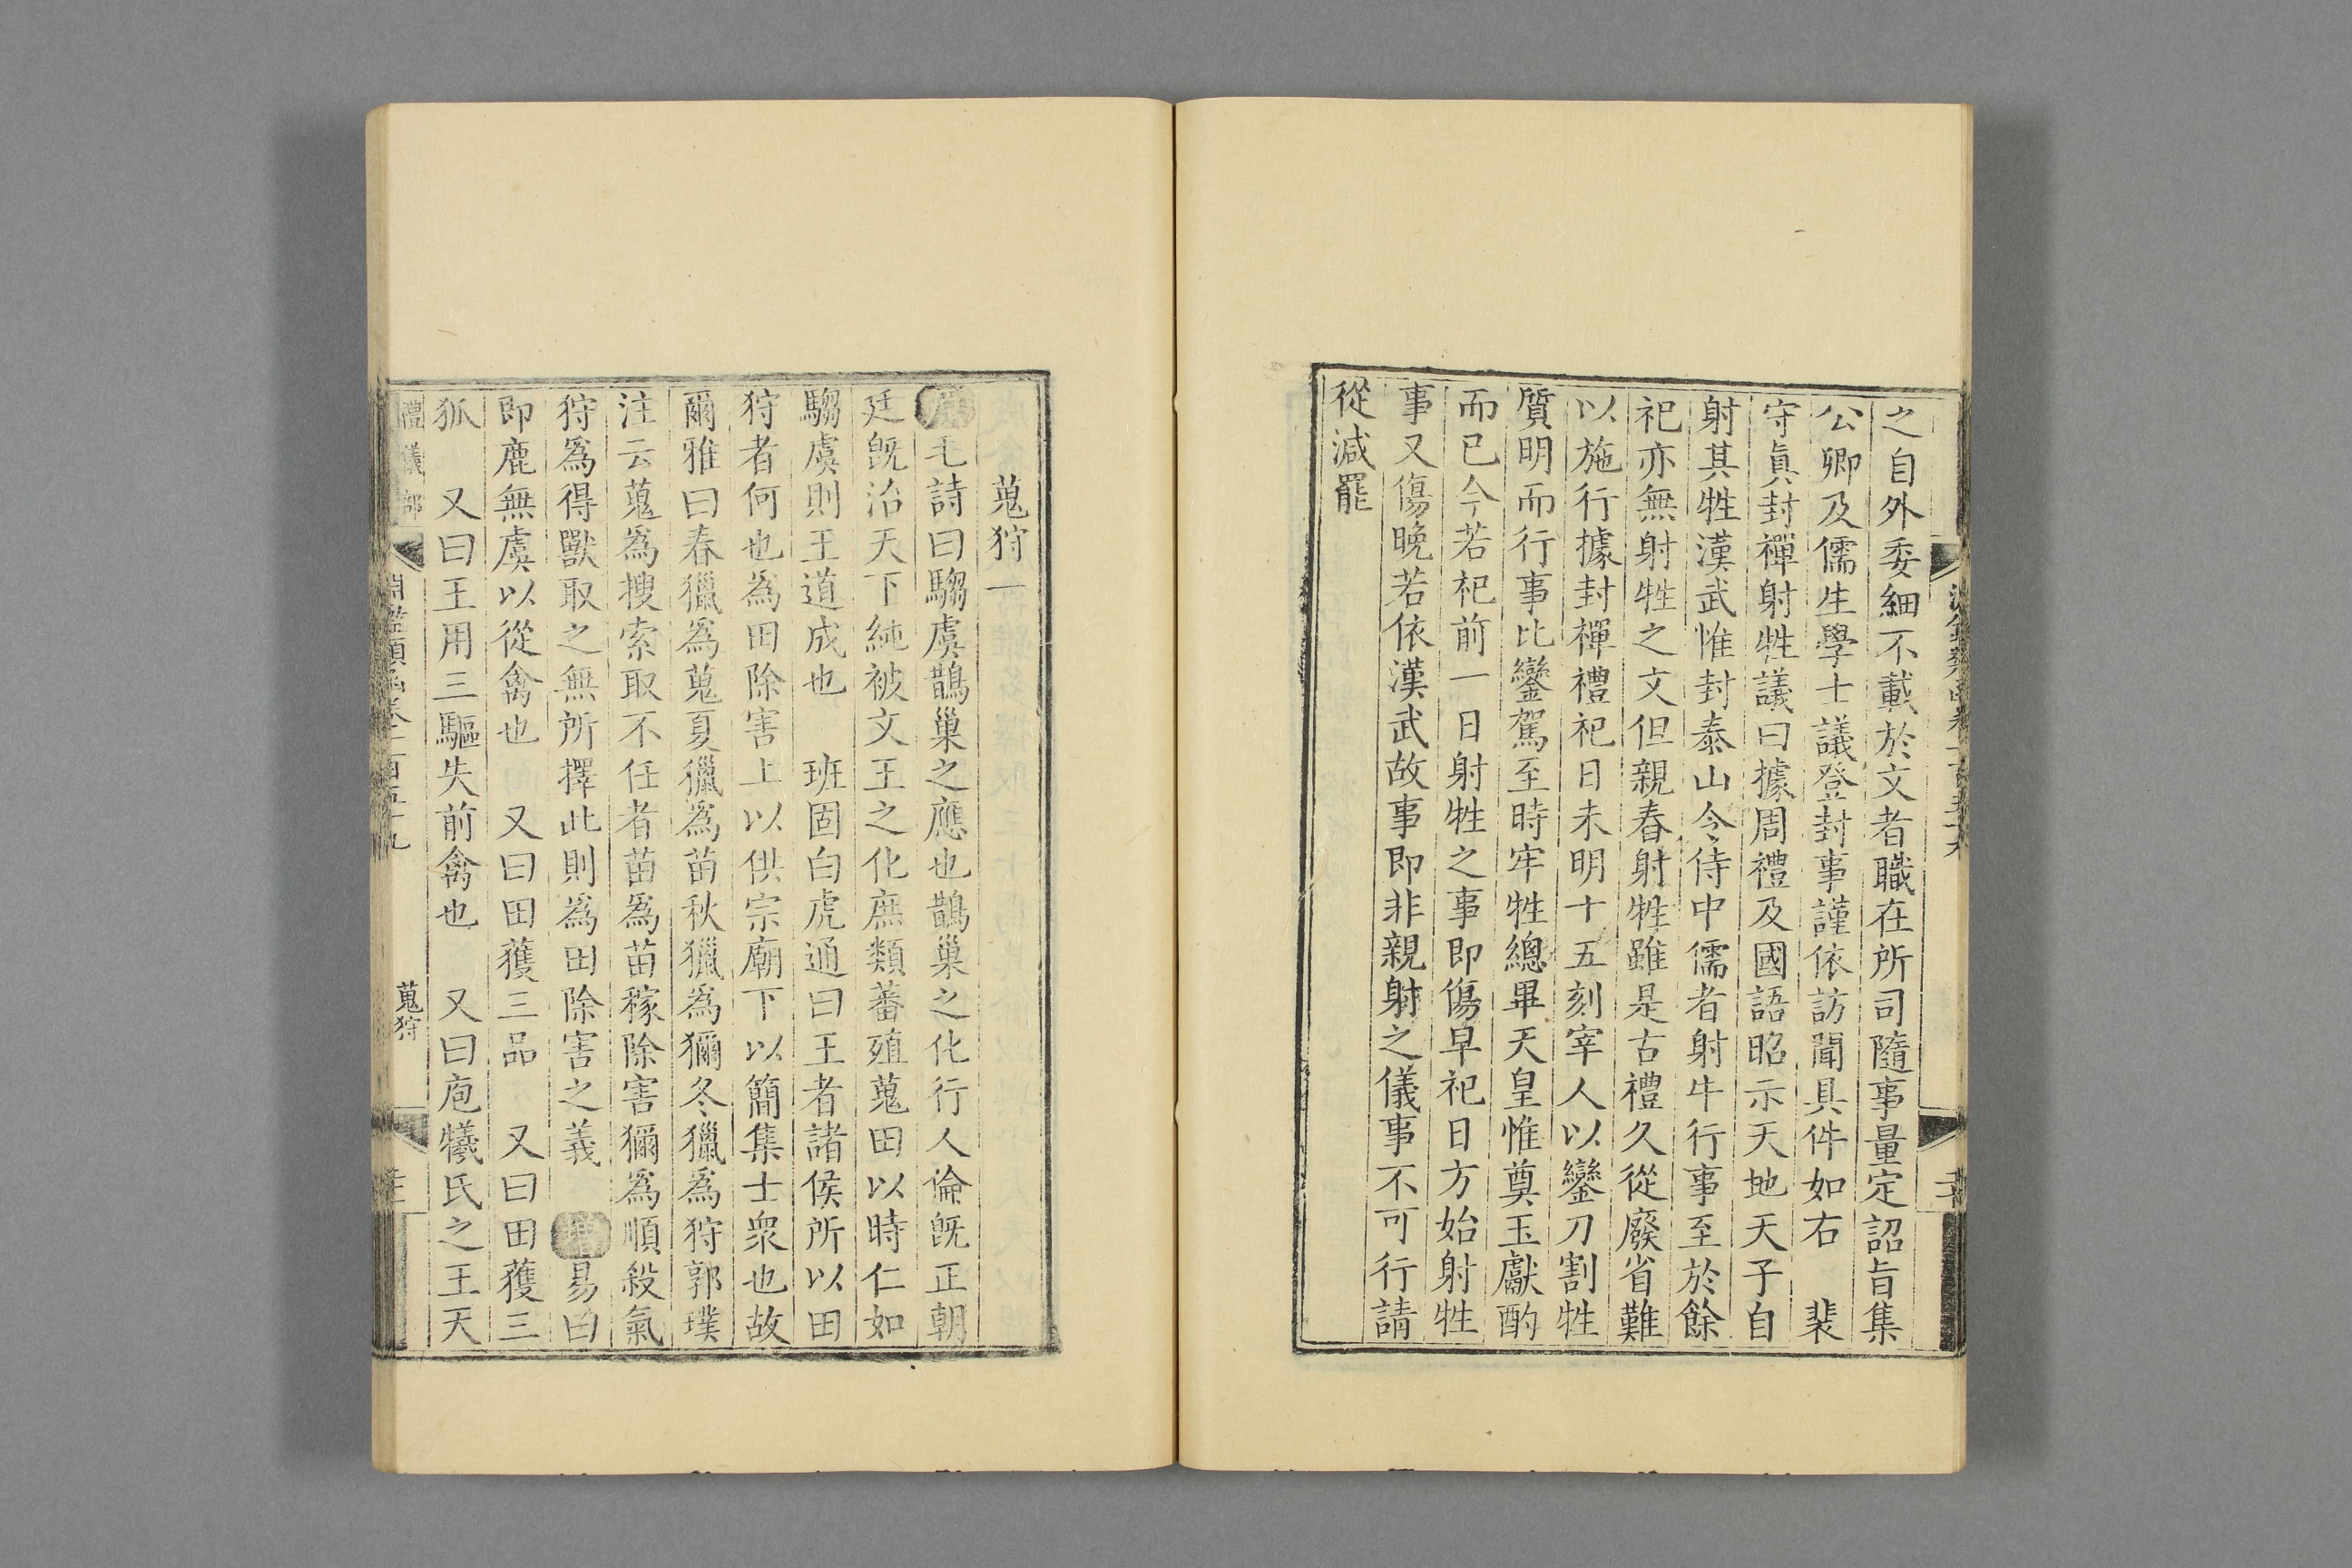 之自外委細不載於文者職在所司隨事量定詔旨集
公卿及儒生學士議登封事謹依訪聞具件如右　裴
守眞封禪射牲議曰據周禮及國語昭示天地天子自
射其牲漢武惟封泰山令侍中儒者射牛行事至於餘
祀亦無射牲之文但親舂射牲雖是古禮久從廢省難
以施行據封禪禮祀日未明十五刻宰人以鑾刀割牲
質明而行事比鑾駕至時牢牲總畢天皇惟奠玉獻酌
而已今若祀前一日射牲之事即傷早祀日方始射牲
事又傷晚若依漢武故事即非親射之儀事不可行請
從減罷
蒐狩一
毛詩曰騶虞鵲巢之應也鵲巢之化行人倫旣正朝
廷旣治天下純被文王之化庶類蕃殖蒐田以時仁如
騶虞則王道成也　班固白虎通曰王者諸侯所以田
狩者何也爲田除害上以供宗廟下以簡集士衆也故
爾雅曰春獵爲蒐夏獵爲苗秋獵爲獮冬獵爲狩郭璞
注云蒐爲搜索取不任者苗爲苗稼除害獮爲順殺氣
狩爲得獸取之無所擇此則爲田除害之義　易曰
即鹿無虞以從禽也　又曰田獲三品　又曰田獲三
狐　又曰王用三驅失前禽也　又曰庖犧氏之王天
禮儀部
淵鑑類函卷一百五十九
蒐狩